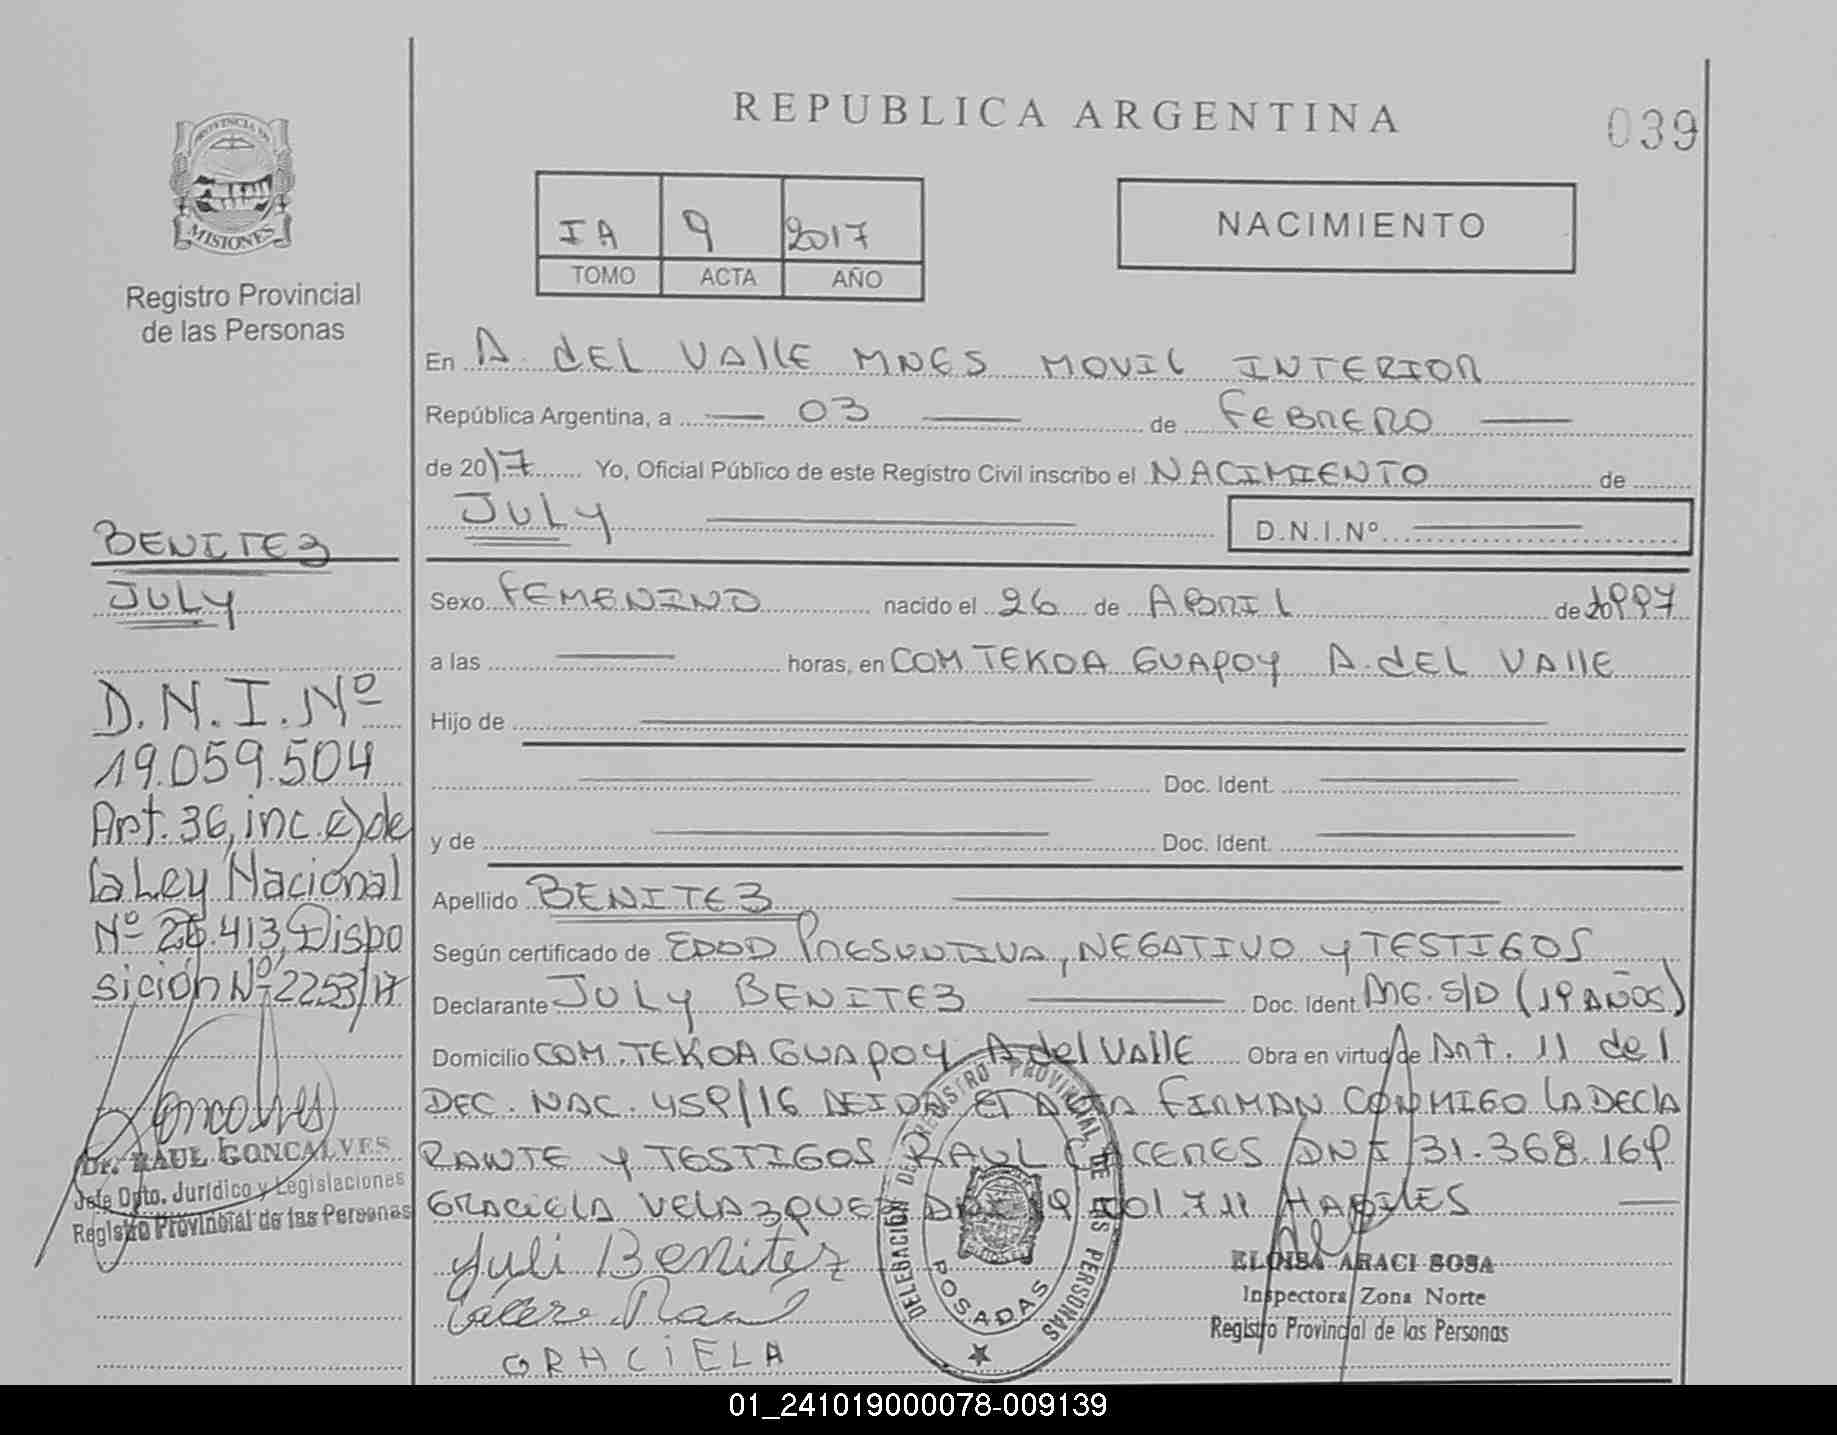 REPUBLICA ARGENTINA
039
PROVINCIA DE
MISIONES
Registro Provincial
de las Personas
IA 9 2017
TOMO ACTA AÑO
NACIMIENTO
En A. dEL VAllE MNES MOVIL INTERIOR
República Argentina, a 03 de FEBRERO
de 2017 Yo, Oficial Público de este Registro Civil inscribo el NACIMIENTO de
JULY D.N.I.Nº
Sexo FEMENINO nacido el 26 de ABRIL de 1997
a las horas, en COM TEKOA GUAPOY A. dEL VAllE
Hijo de
Doc. Ident.
y de Doc. Ident.
Apellido BENITEZ
Según certificado de EDAD PRESUNTIVA, NEGATIVO y TESTIGOS
Declarante JULY BENITEZ Doc. Ident. ME. S/D (19 AÑOS)
Domicilio COM. TEKOA GUAPOY A del VAllE Obra en virtud de Art. 11 del
DEC. NAC. 459/16 LEIDA EL ACTA FIRMAN CONMIGO LA DECLA
RANTE y TESTIGOS RAUL CACERES DNI 31.368.169
GRACIELA VELAZQUEZ HABILES
Yuli Benitez
GRACIELA
DELEGACIÓN DE REGISTRO PROVINCIAL DE LAS PERSONAS
POSADAS
ELOISA ARACI SOSA
Inspectora Zona Norte
Registro Provincial de las Personas
BENITEZ
JULY
D.N.I. Nº
19.059.504
Art. 36, inc. c) de
la Ley Nacional
Nº 26.413, Dispo
sición Nº 2253/17
Dr. RAUL GONCALVES
Jefe Dpto. Jurídico y Legislaciones
Registro Provincial de las Personas
01_241019000078-009139